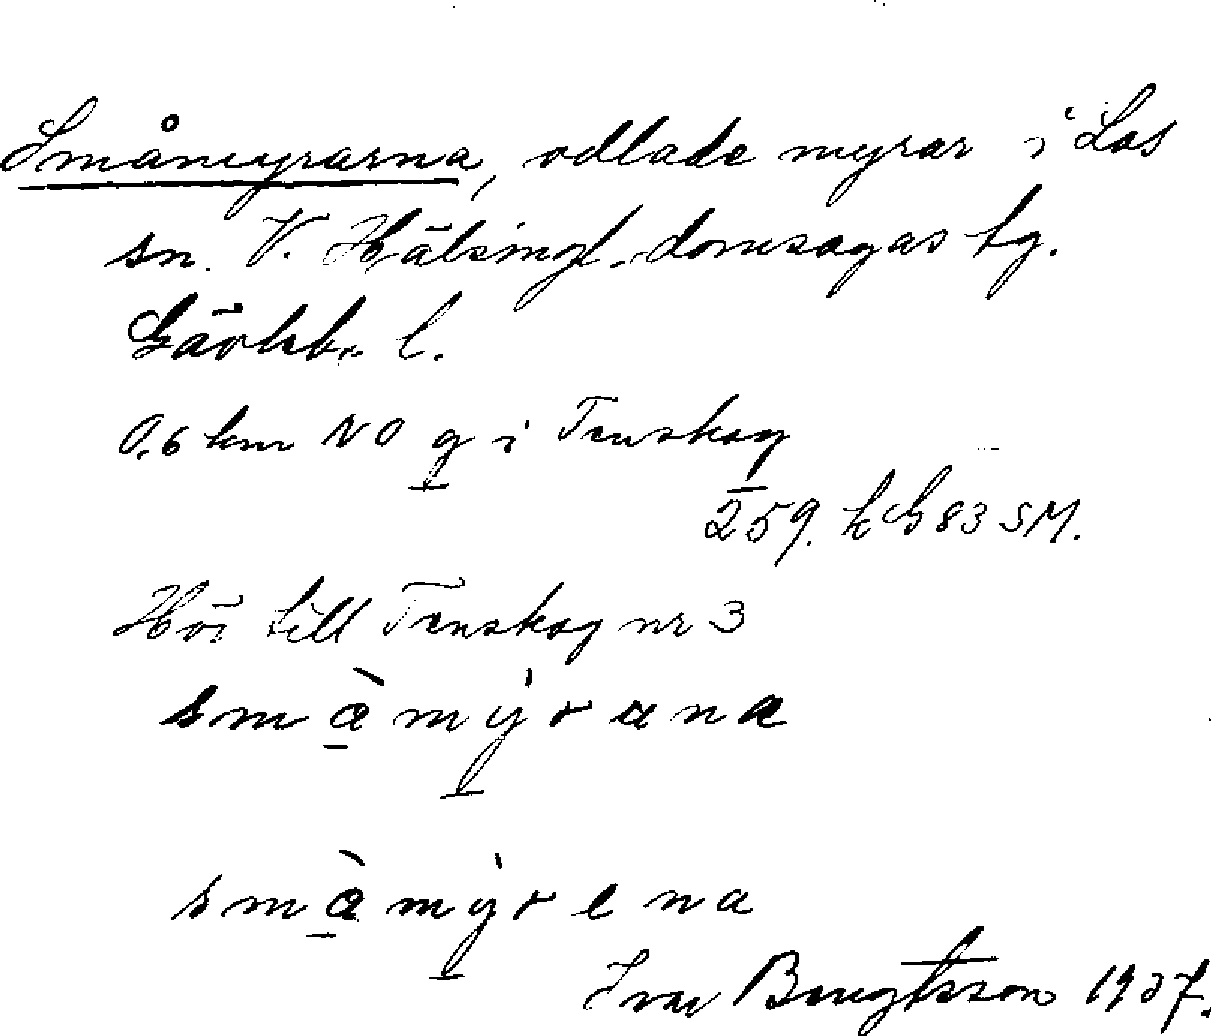 Småmyrarna, odlade myrar i Los
sn. V. Hälsingl. domsagas tg.
Gävleb. l.
0.6 km NO g i Tenskog
259. k G 83 SM.
Hör till Tenskog nr 3
småmýrana
småmýrena
Ivar Bengtsson 1937.